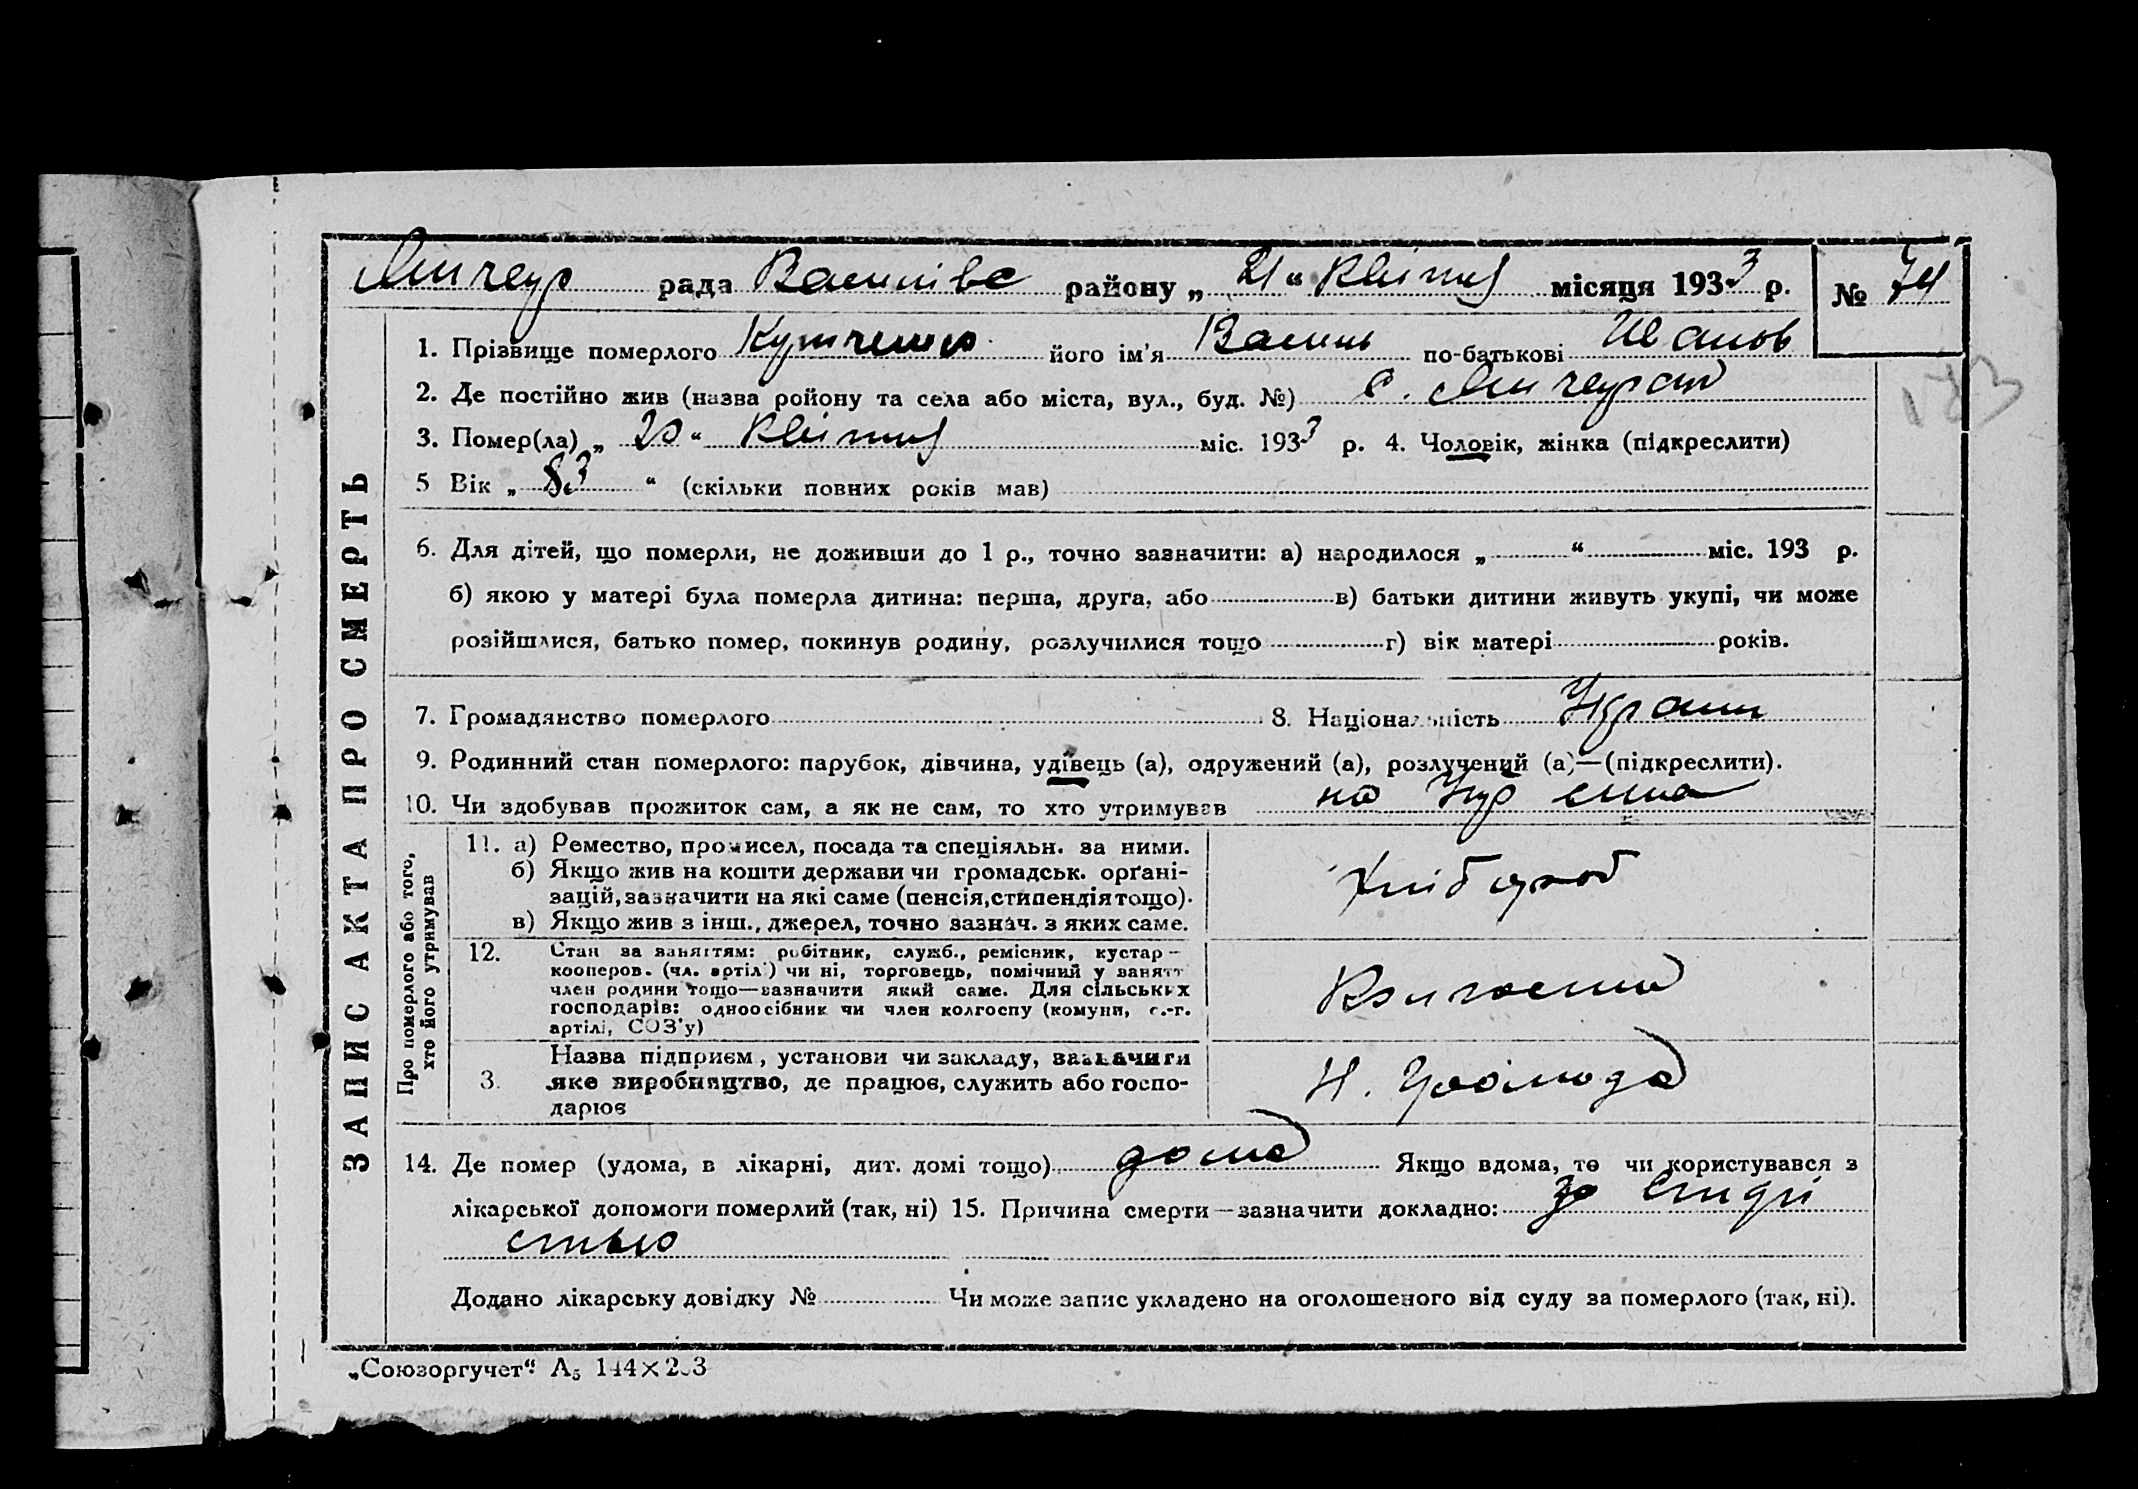 рада Василівс району „ 21 “ Квітня місяця 1933 р. № 74
1. Прізвище померлого його ім’я Василь по-батькові Іванов
2. Де постійно жив (назва ройону та села або міста, вул., буд. №) с.
3. Помер(ла) „ 20 “ Квітня міс. 1933 р. 4. Чоловік, жінка (підкреслити)
5 Вік „ 83 “ (скільки повних років мав)
6. Для дітей, що померли, не доживши до 1 р., точно зазначити: а) народилося „ “ міс. 193 р.
б) якою у матері була померла дитина: перша, друга, або в) батьки дитини живуть укупі, чи може
розійшлися, батько помер, покинув родину, розлучилися тощо г) вік матері років.
7. Громадянство померлого 8. Національність Україн
9. Родинний стан померлого: парубок, дівчина, удівець (а), одружений (а), розлучений (а)—(підкреслити).
10. Чи здобував прожиток сам, а як не сам, то хто утримував на сина
ЗАПИС АКТА ПРО СМЕРТЬ
Про померлого або того,
хто його утримував
11. а) Ремество, промисел, посада та спеціяльн. за ними.
б) Якщо жив на кошти держави чи громадськ. орґані-
зацій, зазначити на які саме (пенсія, стипендія тощо).
в) Якщо жив з інш., джерел, точно зазнач. з яких саме.
Хлібороб
12. Стан за заняттям: робітник, служб., ремісник, кустар—
кооперов. (чл. артіл.) чи ні, торговець, помічний у занятт
член родини тощо—зазначити який саме. Для сільських
господарів: одноосібник чи член колгоспу (комуни, с.-г.
артілі, СОЗ’у)
3. Назва підприєм, установи чи закладу, зазначити
яке виробництво, де працює, служить або госпо-
дарює
14. Де помер (удома, в лікарні, дит. домі тощо) дома Якщо вдома, то чи користувався з
лікарської допомоги померлий (так, ні) 15. Причина смерти—зазначити докладно:
стью
Додано лікарську довідку № Чи може запис укладено на оголошеного від суду за померлого (так, ні).
„Союзоргучет“ А5